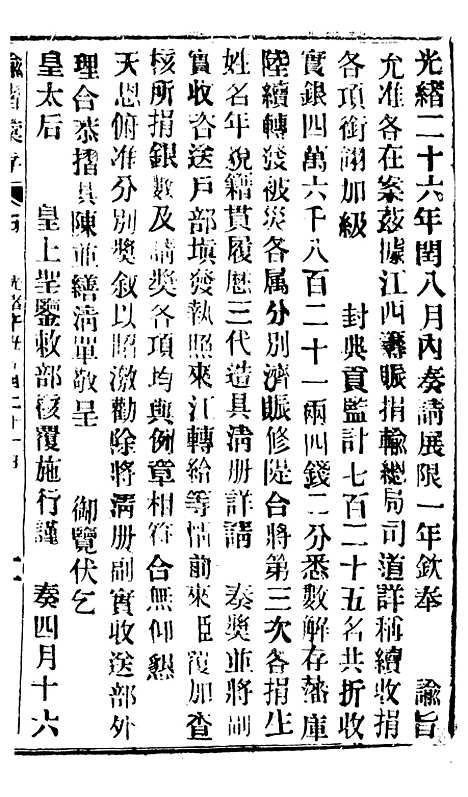 光緒二十六年閏八月內奏請展限一年欽奉 諭旨
允准各在案茲據江西籌賑捐輸總局司道詳稱續收捐
各項銜翎加級 封典貢監計七百二十五名共折收
實銀四萬六千八百二十一兩四錢二分悉數解存藩庫
陸續轉發被災各属分別濟賑修隄合將第三次各捐生
姓名年貌籍貫履歷三代造具清册詳請 奏獎並將副
實收咨送戶部塡發執照來江轉給等情前來臣覆加查
核所捐銀數及請獎各項均與例章相符合無仰懇
天恩俯准分別獎叙以昭激勸除將清册副實收送部外
理合恭摺具陳並繕清單敬呈 御覽伏乞
皇太后 皇上聖鑒敕部核覆施行謹 奏四月十六
諭摺彙存